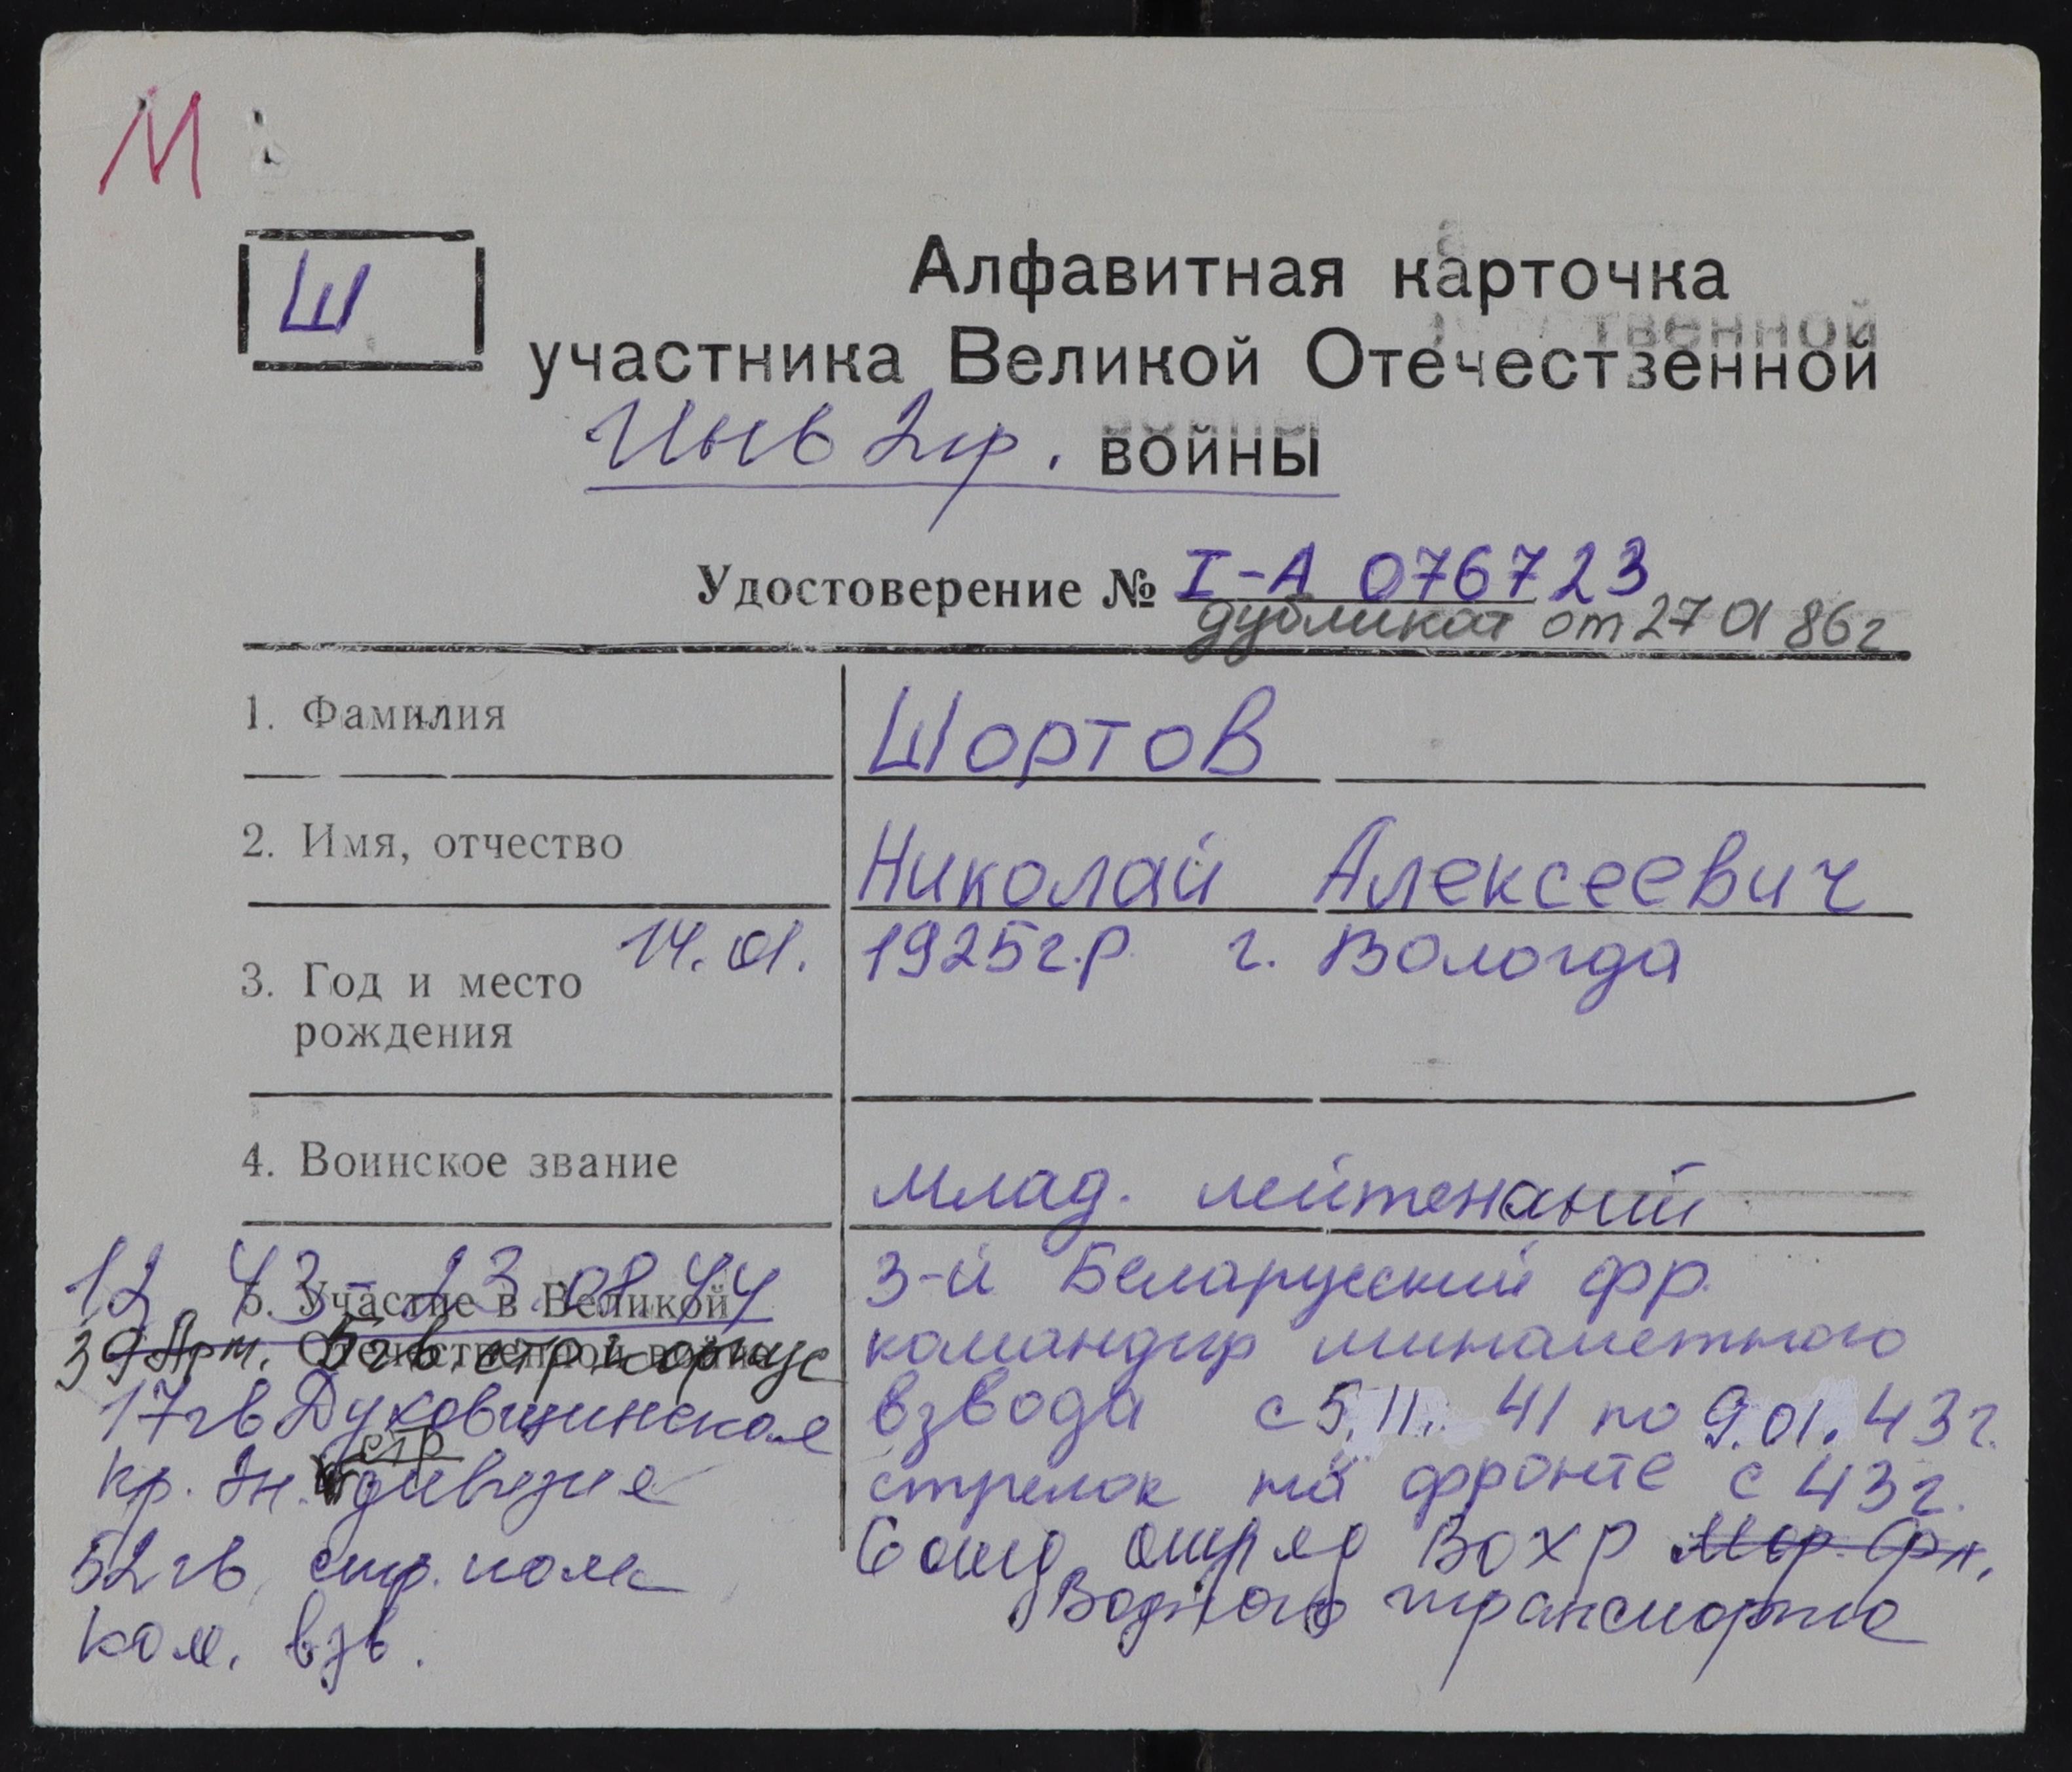 М
Ш
Алфавитная карточка
участника Великой Отечественной
Инв 2гр. войны
Удостоверение № I-А 076723
дубликат от 27 01 86г
1. Фамилия Шортов
2. Имя, отчество Николай Алексеевич
3. Год и место рождения 14.01. 1925г.р. г. Вологда
4. Воинское звание млад. лейтенант
5. Участие в Великой Отечественной войне
12 43 - 23 08 44
39 Арм. 5 гв. стр корпус
17 гв Духовщинская
кр. Зн. стр дивизия
52 гв. стр. полк
ком. взв.
3-й Беларусский фр.
командир минометного
взвода с 5.11. 41 по 9.01.43г.
стрелок на фронте с 43г.
отряд ВОХР Мор. Фл.
Водного транспорта